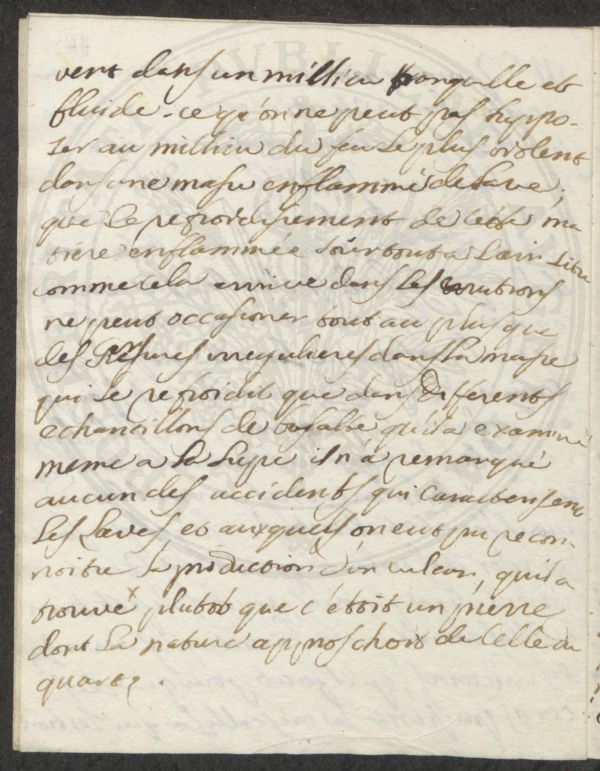 vert dans un millieu tranquille et
fluide - ce qu'on ne peut pas suppo-
ser au millieu du feu le plus violent
dans une masse enflammé de Lave,
que le refroidissement de cette ma
tiere enflammée surtout a L'air Libre
comme cela arrive dans Les
ne peut occasioner tout au plus que
des irregulieres dans La masse
qui se refroidit que dans differents
echantillons de basalte qu'il a examiné
meme a La Lupe il n'a remarqué
aucun des accidents qui caracterisent
Les Laves et auxquels on eut pu recon-
noitre La production d'un vulcan, qu'il a
trouvé plutot que c'étoit un pierre
dont La nature approschoit de Celle du
quartz.